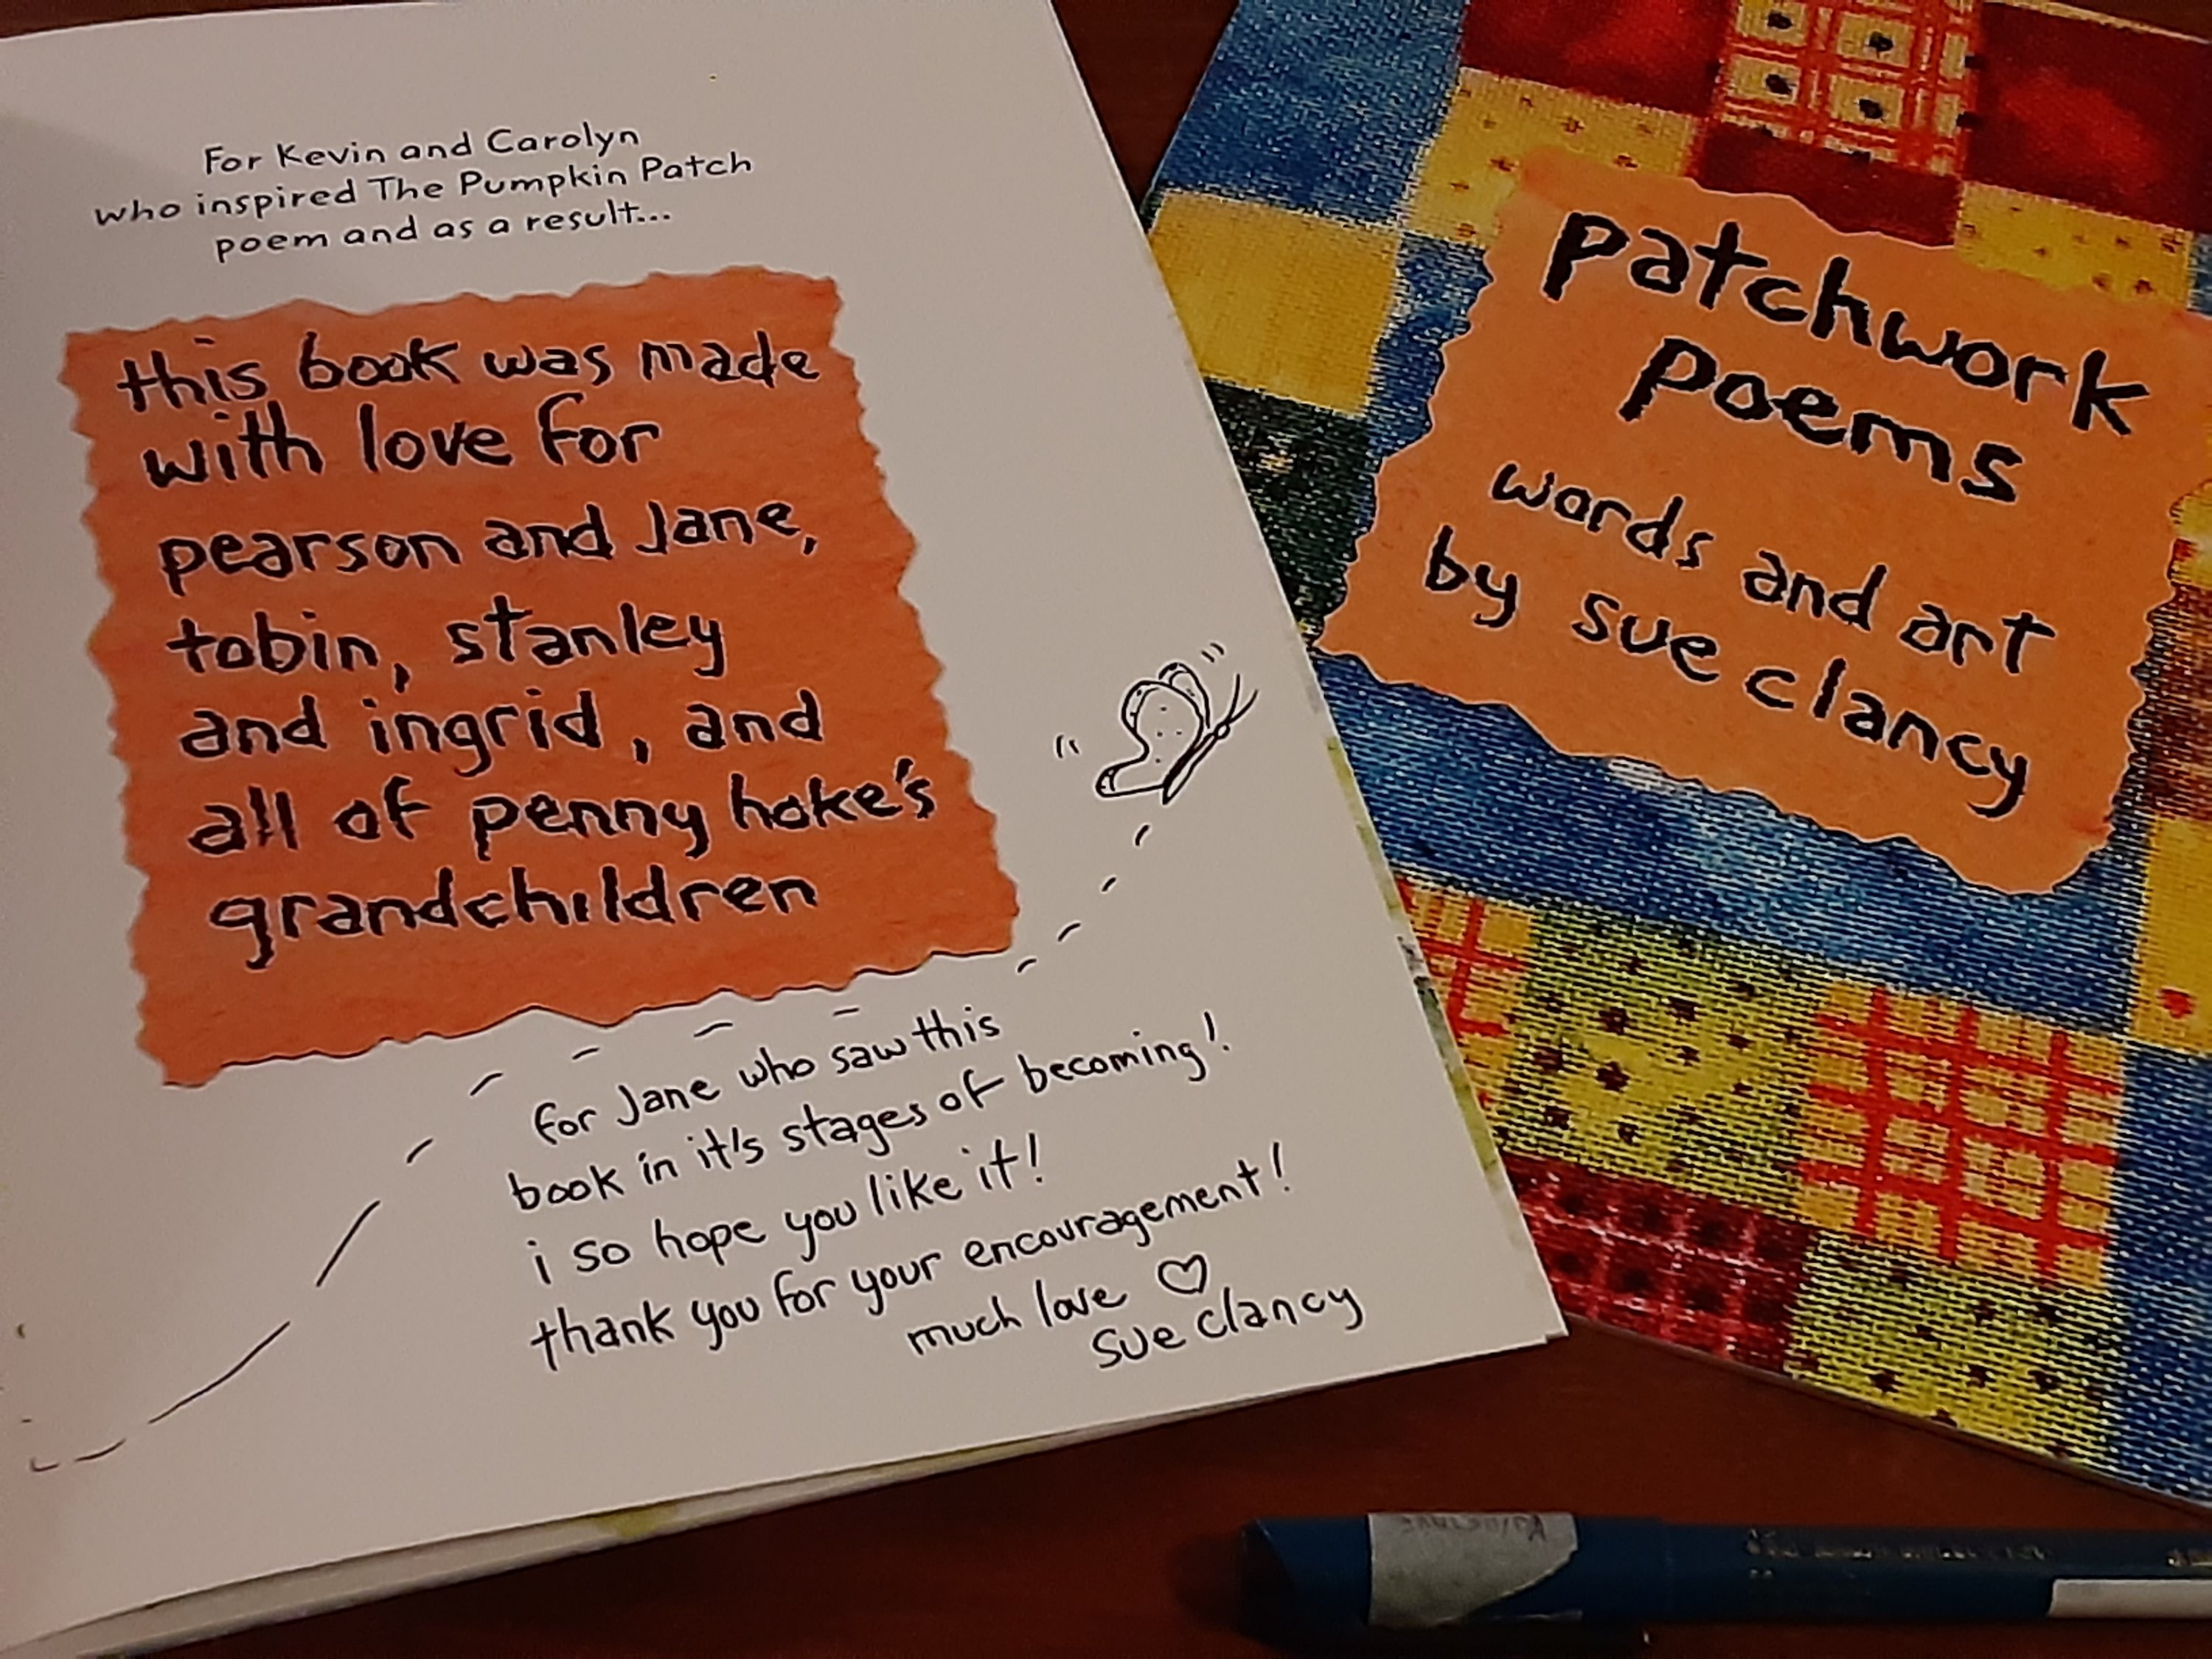 For Kevin and Carolyn
who inspired The Pumpkin Patch
poem and as a result...
this book was made
with love for
pearson and Jane,
tobin, stanley
and ingrid, and
all of penny hoke's
grandchildren
for Jane who saw this
book in it's stages of becoming!
i so hope you like it!
thank you for your encouragement!
much love ♡
sue clancy
patchwork
poems
words and art
by sue clancy